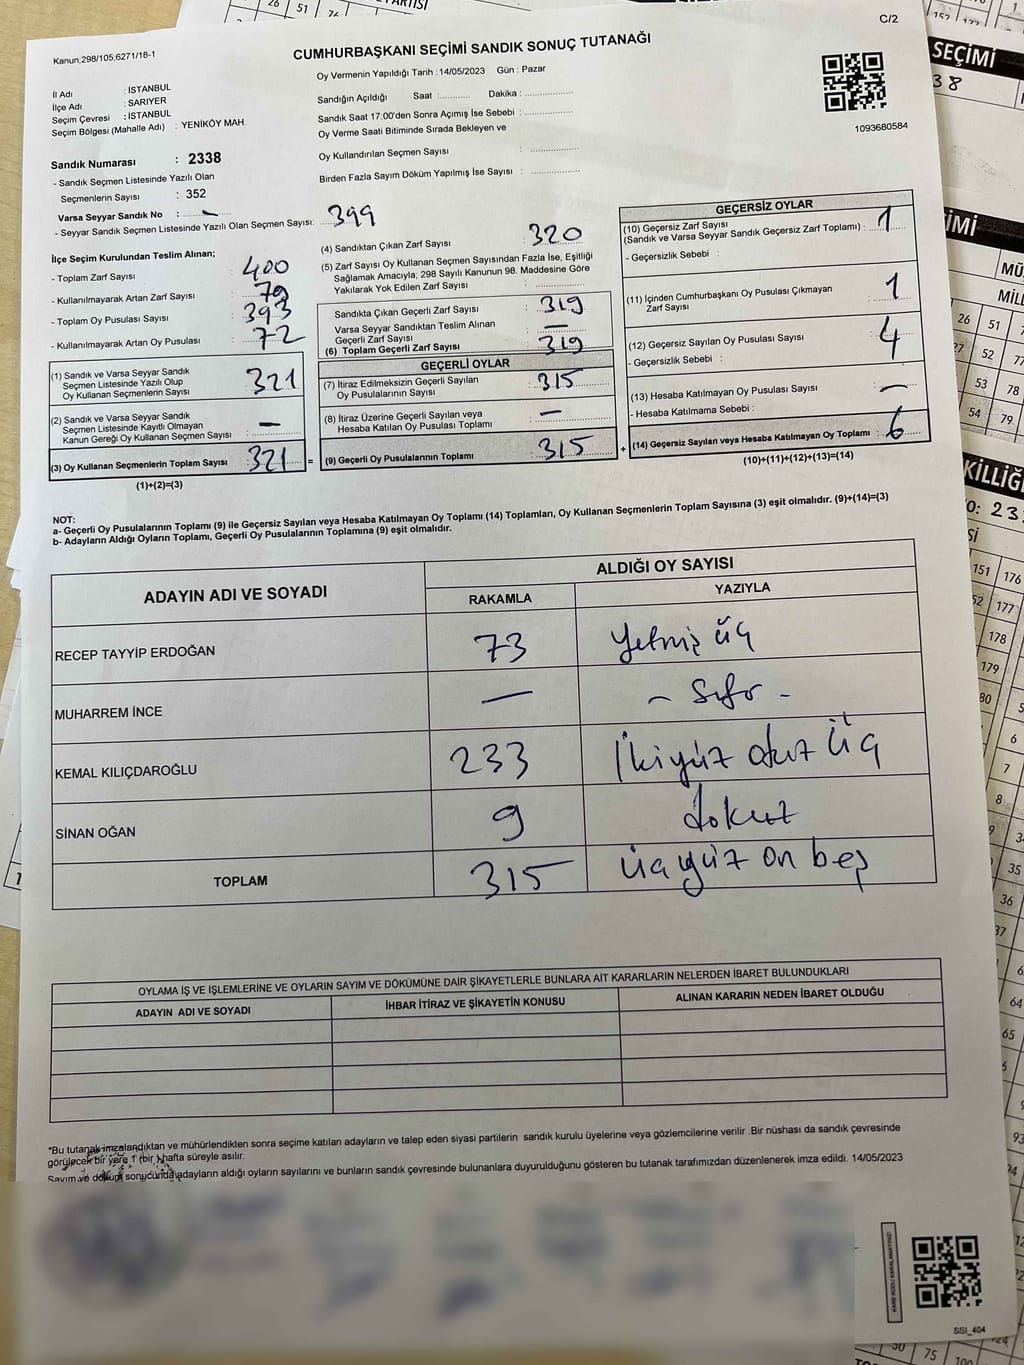 C/2
Kanun,298/105,6271/18-1
CUMHURBAŞKANI SEÇİMİ SANDIK SONUÇ TUTANAĞI
Oy Vermenin Yapıldığı Tarih :14/05/2023 Gün : Pazar
İl Adı : İSTANBUL
İlçe Adı : SARIYER
Seçim Çevresi : İSTANBUL
Seçim Bölgesi (Mahalle Adı) : YENİKÖY MAH.
Sandığın Açıldığı Saat :........... Dakika :..................
Sandık Saat 17.00'den Sonra Açımış İse Sebebi :..................
Oy Verme Saati Bitiminde Sırada Bekleyen ve
Oy Kullandırılan Seçmen Sayısı :..................
Birden Fazla Sayım Döküm Yapılmış İse Sayısı :..................
1093680584
Sandık Numarası : 2338
- Sandık Seçmen Listesinde Yazılı Olan
Seçmenlerin Sayısı : 352
Varsa Seyyar Sandık No : —
- Seyyar Sandık Seçmen Listesinde Yazılı Olan Seçmen Sayısı: 399
İlçe Seçim Kurulundan Teslim Alınan;
- Toplam Zarf Sayısı : 400
- Kullanılmayarak Artan Zarf Sayısı : 79
- Toplam Oy Pusulası Sayısı : 393
- Kullanılmayarak Artan Oy Pusulası : 72
(1) Sandık ve Varsa Seyyar Sandık
Seçmen Listesinde Yazılı Olup
Oy Kullanan Seçmenlerin Sayısı : 321
(2) Sandık ve Varsa Seyyar Sandık
Seçmen Listesinde Kayıtlı Olmayan
Kanun Gereği Oy Kullanan Seçmen Sayısı : —
(3) Oy Kullanan Seçmenlerin Toplam Sayısı : 321 =
(1)+(2)=(3)
(4) Sandıktan Çıkan Zarf Sayısı : 320
(5) Zarf Sayısı Oy Kullanan Seçmen Sayısından Fazla İse, Eşitliği
Sağlamak Amacıyla; 298 Sayılı Kanunun 98. Maddesine Göre
Yakılarak Yok Edilen Zarf Sayısı :..................
Sandıkta Çıkan Geçerli Zarf Sayısı : 319
Varsa Seyyar Sandıktan Teslim Alınan
Geçerli Zarf Sayısı : —
(6) Toplam Geçerli Zarf Sayısı : 319
GEÇERLİ OYLAR
(7) İtiraz Edilmeksizin Geçerli Sayılan
Oy Pusulalarının Sayısı : 315
(8) İtiraz Üzerine Geçerli Sayılan veya
Hesaba Katılan Oy Pusulası Toplamı : —
(9) Geçerli Oy Pusulalarının Toplamı : 315 +
GEÇERSİZ OYLAR
(10) Geçersiz Zarf Sayısı
(Sandık ve Varsa Seyyar Sandık Geçersiz Zarf Toplamı) : 1
- Geçersizlik Sebebi :
(11) İçinden Cumhurbaşkanı Oy Pusulası Çıkmayan
Zarf Sayısı : 1
(12) Geçersiz Sayılan Oy Pusulası Sayısı : 4
- Geçersizlik Sebebi :
(13) Hesaba Katılmayan Oy Pusulası Sayısı : —
- Hesaba Katılmama Sebebi :
(14) Geçersiz Sayılan veya Hesaba Katılmayan Oy Toplamı : 6
(10)+(11)+(12)+(13)=(14)
NOT:
a- Geçerli Oy Pusulalarının Toplamı (9) ile Geçersiz Sayılan veya Hesaba Katılmayan Oy Toplamı (14) Toplamları, Oy Kullanan Seçmenlerin Toplam Sayısına (3) eşit olmalıdır. (9)+(14)=(3)
b- Adayların Aldığı Oyların Toplamı, Geçerli Oy Pusulalarının Toplamına (9) eşit olmalıdır.
ADAYIN ADI VE SOYADI
ALDIĞI OY SAYISI
RAKAMLA YAZIYLA
RECEP TAYYİP ERDOĞAN 73 Yetmiş üç
MUHARREM İNCE — - Sıfır -
KEMAL KILIÇDAROĞLU 233 İkiyüz otuz üç
SİNAN OĞAN 9 dokuz
TOPLAM 315 üçyüz on beş
OYLAMA İŞ VE İŞLEMLERİNE VE OYLARIN SAYIM VE DÖKÜMÜNE DAİR ŞİKAYETLERLE BUNLARA AİT KARARLARIN NELERDEN İBARET BULUNDUKLARI
ADAYIN ADI VE SOYADI İHBAR İTİRAZ VE ŞİKAYETİN KONUSU ALINAN KARARIN NEDEN İBARET OLDUĞU
*Bu tutanak imzalandıktan ve mühürlendikten sonra seçime katılan adayların ve talep eden siyasi partilerin sandık kurulu üyelerine veya gözlemcilerine verilir .Bir nüshası da sandık çevresinde
görülecek bir yere 1 (bir) hafta süreyle asılır.
Sayım ve döküm sonucunda adayların aldığı oyların sayılarını ve bunların sandık çevresinde bulunanlara duyurulduğunu gösteren bu tutanak tarafımızdan düzenlenerek imza edildi. 14/05/2023
KARE KODU KARALAMAYINIZ!
SSI_404
SEÇİMİ
38